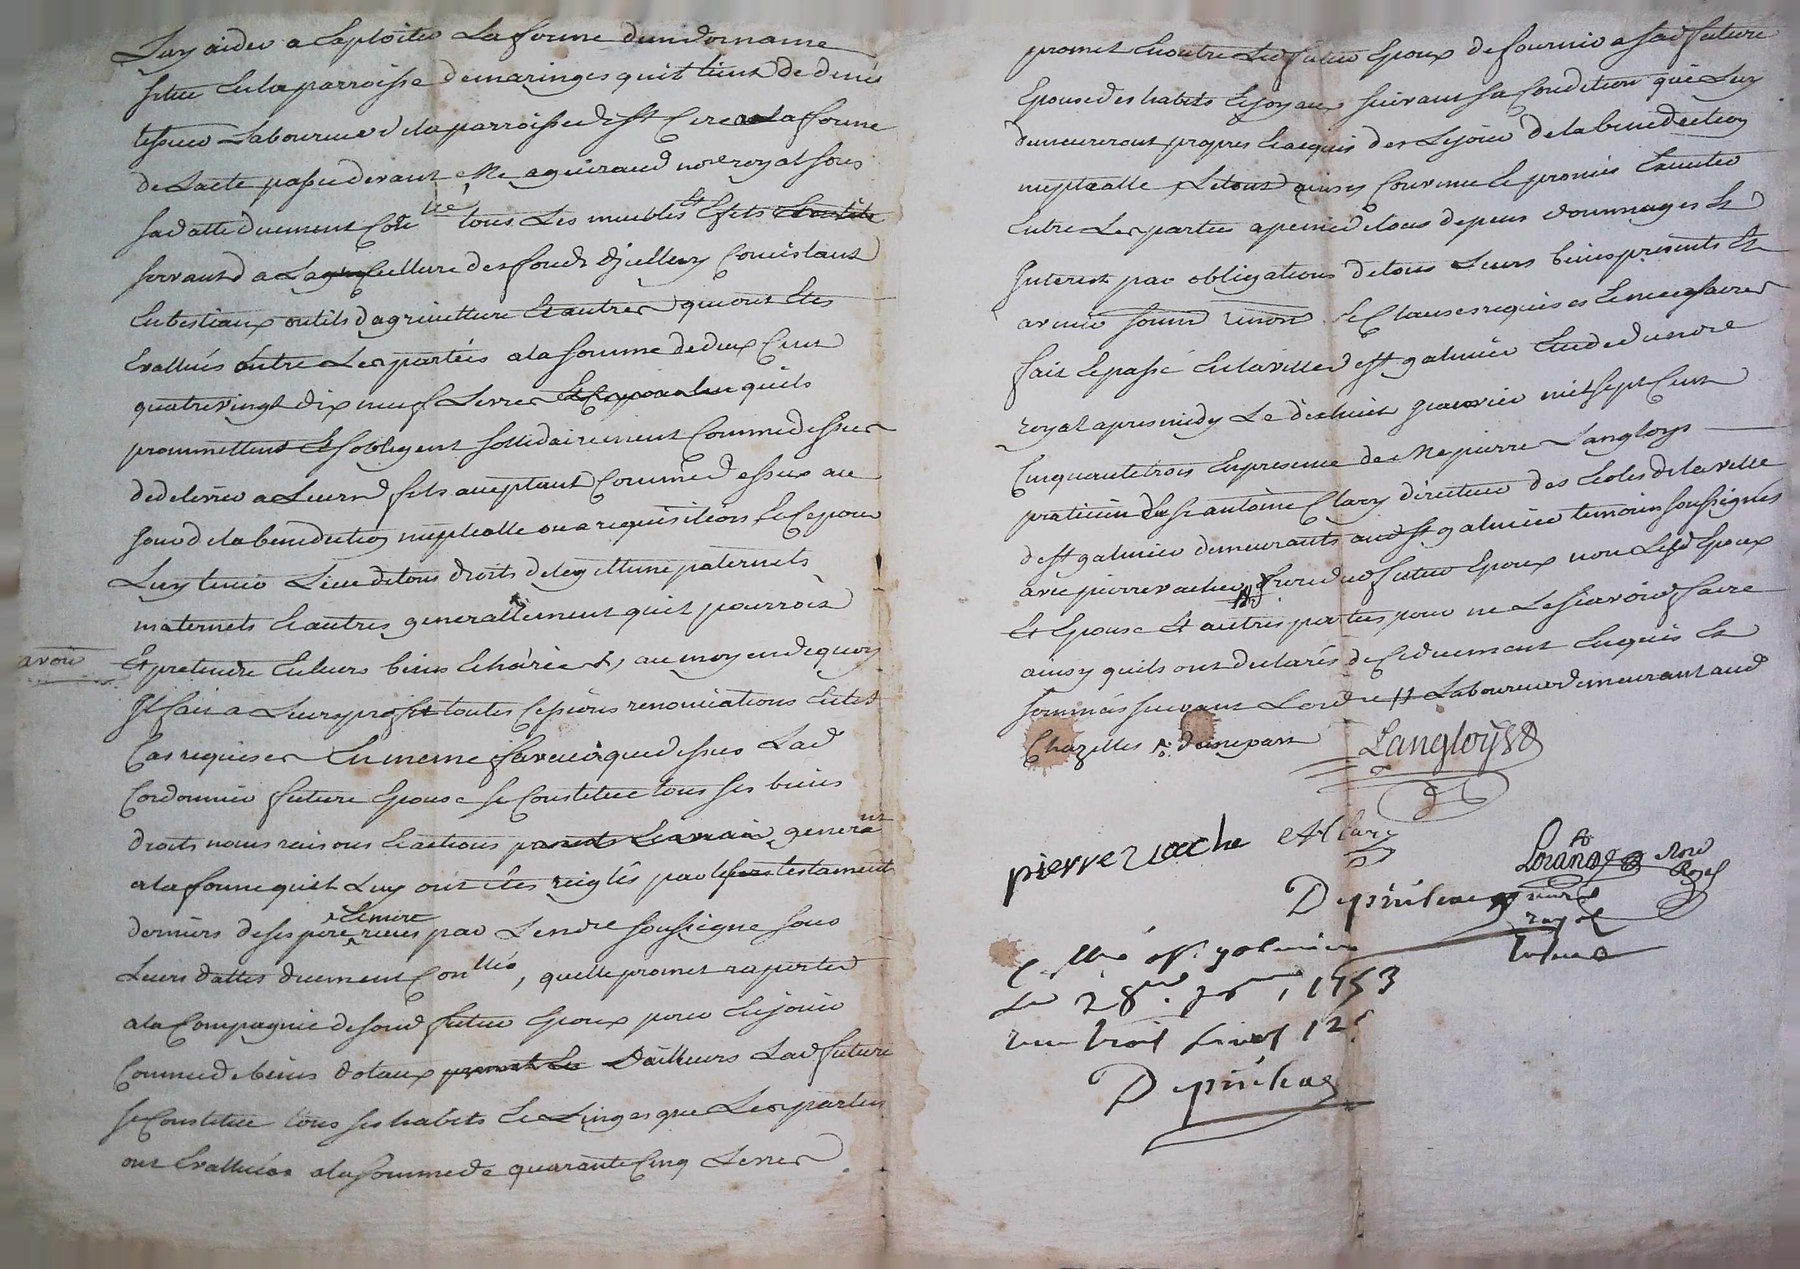 Luy aider a Exploiter La ferme dun domaine
scitue En la parroisse de maringes quil tient de denis
tissieur Laboureur de la parroisse de st Cire a la forme
de Lacte passé devant Me aguiraud nore royal sous
sa datte duement Collé tous Les meubles Et Efets
servant a La Culture des fonds djcelluy Consistant
En bestiaux outils dagriculture Et autres qui ont Etés
Evallués Entre Les parties a la somme de deux Cent
quatre vingt dix neuf Livres quils
prommettent Et sobligent sollidairement Comme dessus
de delivrer a Leurd fils aceptant Comme dessus au
jour de la benediction nuptialle ou a requisition Et Ce pour
Luy tenir Lieu de tous droits de legittime paternels
maternels Et autres generallement quil pourroit
avoir
Et pretendre En leurs biens Et hoiries, au moyen de quoy
Il fait a Leurs profit toutes Cessions renonciations En tel
Cas requises En meme faveur que dessus Lad
Cordonnier future Epouse se Constitue tous ses biens
droits noms raisons Et actions generaux
a la forme quil Luy ont Etés reiglés par les testament
derniers de ses pere Et mere recus par Le nore soussigné sous
Leurs dattes duement Conllés, quelle promet raporter
a la Compagnie de sond futur Epoux pour En jouir
Comme de biens dotaux dailleurs Lad future
se Constitue tous ses habits Et Linges que Les parties
ont Evallués a la somme de quarante Cinq Livres
promet En outre Led futur Epoux de fournir a sad future
Epouse des habits Et joyaux suivant sa Condition qui Luy
demeureront propres Et acquis des Le jour de la benediction
nuptialle Le tout ainsy Convenu Et promis Executer
Entre Les parties a peine de tous depens dommages Et
Interest par obligations de tous Leurs biens presents Et
avenir soum renon Et Clauses requises Et necessaires
fait Et passé En la ville de st galmier Etude du nore
royal apres midy Le dixhuit janvier mil sept Cent
Cinquante trois En presence de Me pierre Langloys
praticien Sr antoine Clary directeur des Ecoles de la ville
de st galmier demeurants aud st galmier temoins soussignés
avec pierre vache frere dud futur Epoux non Lesd Epoux
Et Epouse Et autres parties pour ne Le scavoir faire
ainsy quils ont declarés de Ce duement Enquis Et
sommés suivant Lordre Laboureur demeurant aud
Chazelles dune part Langloys
pierre vache A Clary
Lorange nore
Royal
C llé a st galmier
Le 28 janvier 1753
recu trois Livres 12 s